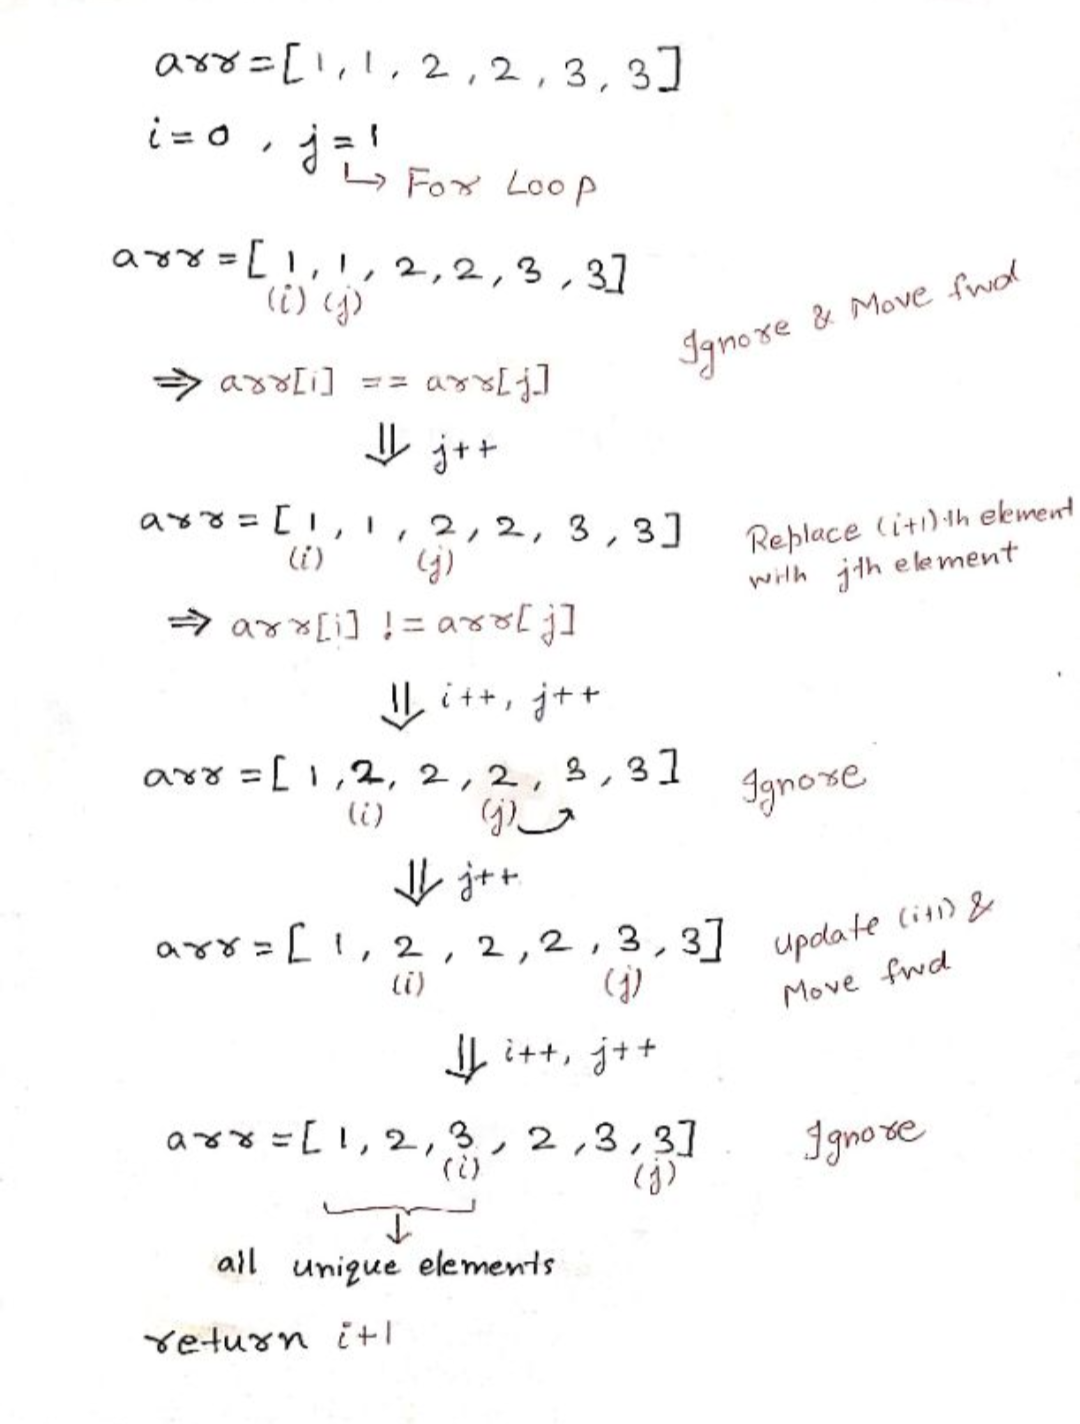 arr = [1, 1, 2, 2, 3, 3]
i = 0 , j = 1
↳ For Loop
arr = [1, 1, 2, 2, 3, 3]
(i) (j)
Ignore & Move fwd
⇒ arr[i] == arr[j]
⇓ j++
arr = [1, 1, 2, 2, 3, 3]
(i) (j)
Replace (i+1)th element
with jth element
⇒ arr[i] != arr[j]
⇓ i++, j++
arr = [1, 2, 2, 2, 3, 3] Ignore
(i) (j)
⇓ j++
arr = [1, 2, 2, 2, 3, 3]
(i) (j)
update (i+1) &
Move fwd
⇓ i++, j++
arr = [1, 2, 3, 2, 3, 3] Ignore
(i) (j)
↓
all unique elements
return i+1